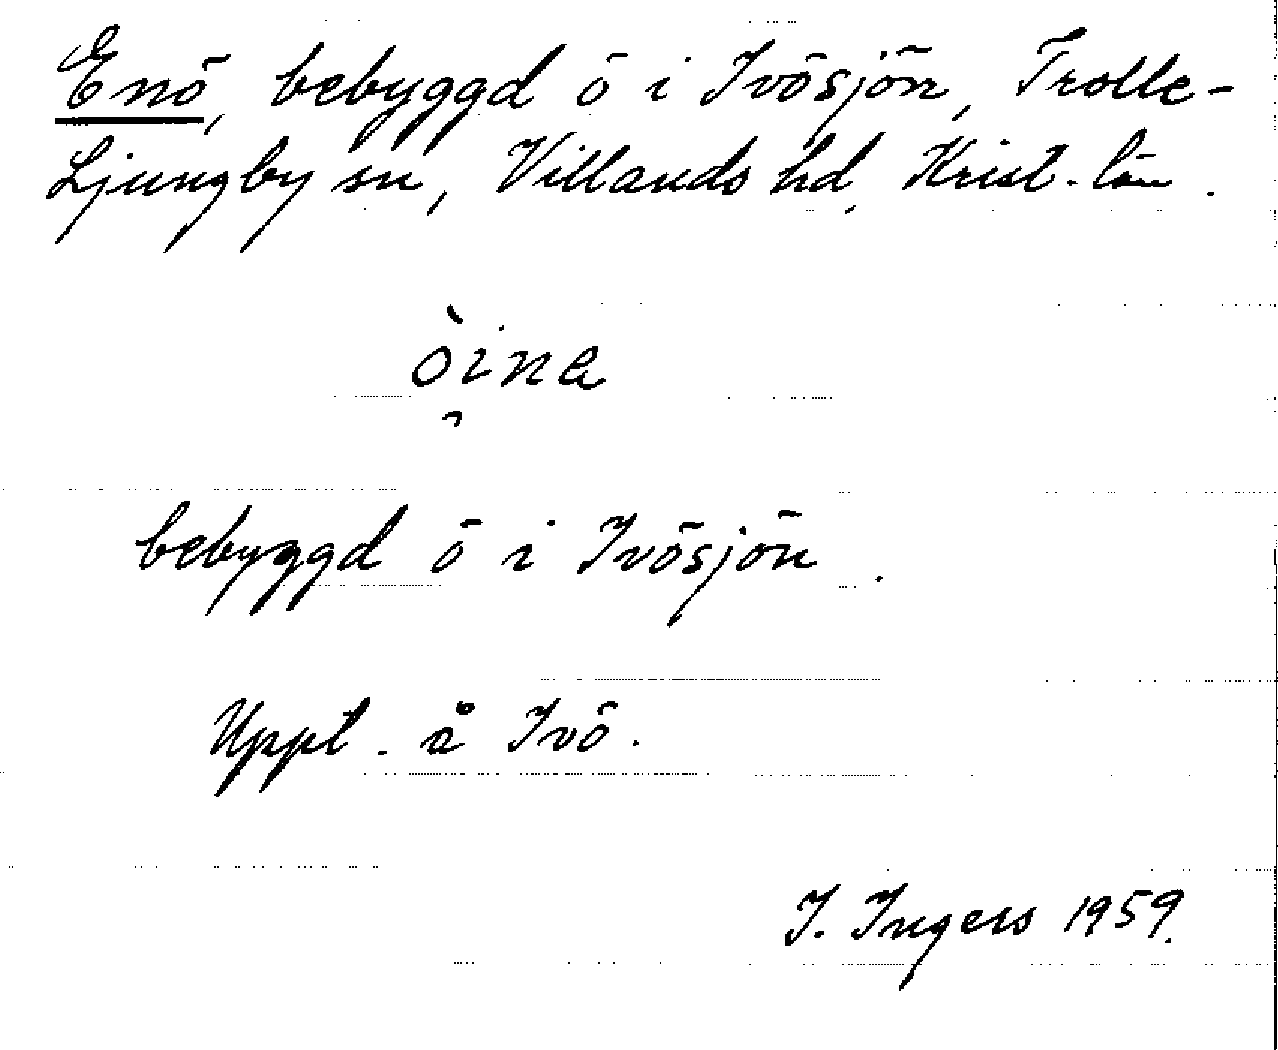 Enö, bebyggd ö i Ivösjön, Trolle-
Ljungby sn, Villands hd, Krist. län.
bebyggd ö i Ivösjön.
Uppt. å Ivö.
I. Ingers 1959.